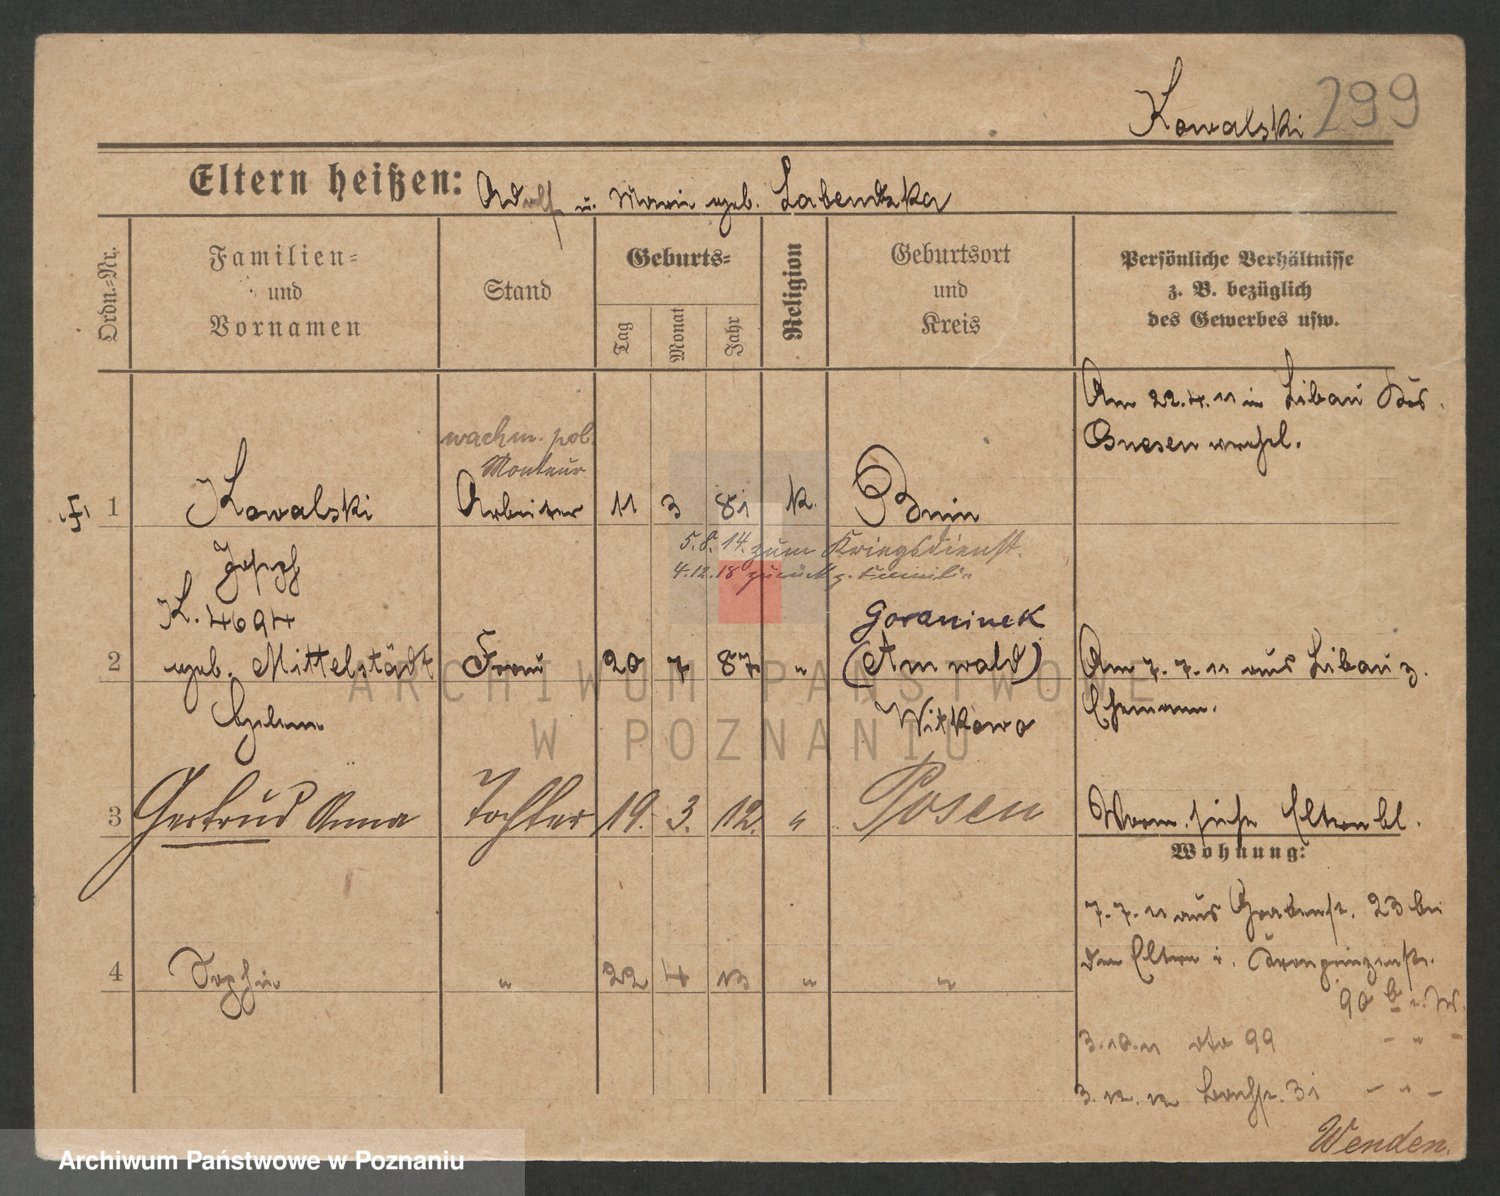 Kowalski 299
Eltern heißen: Adolf u. Marie geb. Labendzka
Ordn.=Nr.
Familien=
und
Vornamen
Stand
Geburts=
Tag
Monat
Jahr
Religion
Geburtsort
und
Kreis
Persönliche Verhältnisse
z. B. bezüglich
des Gewerbes usw.
Am 22.4.11 in Libau Krs.
Gnesen verehl.
wachm. pol.
Monteur
1 Kowalski Arbeiter 11 3 81 k. Bnin
5.8.14. zum Kriegsdienst.
4.12.18 zurück z. Familie
Joseph
K. 4694
Goraninek
2 geb. Mittelstädt Frau 20 7 87 " (Arnwald) Am 7.7.11 aus Libau z.
Helene Witkowo Ehemann.
3 Gertrud Anna Tochter 19. 3. 12. " Posen Vorm. siehe Elternbl.
Wohnung:
7.7.11 aus Grabenst. 23 bei
den Eltern i. Kronprinzenstr.
90 b
4 Sophie " 22 4 13 " "
3.10.11 dto 99 - " -
3.12.12 31 - " -
Wenden.
ARCHIWUM PAŃSTWOWE
W POZNANIU
Archiwum Państwowe w Poznaniu